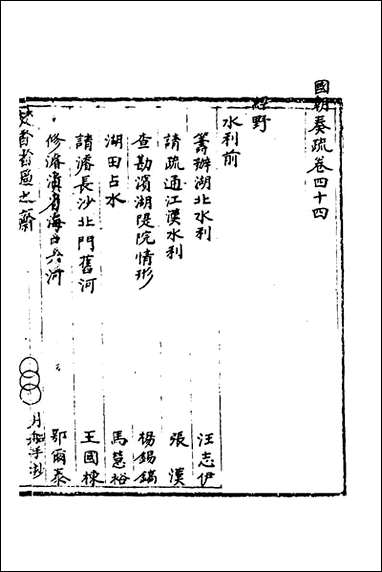 國朝奏疏卷四十四
經野
水利前
籌辦湖北水利 汪志伊
請疏通江漢水利 張漢
查勘濱湖隄院情形 楊錫鏑
湖田占水 馬慧裕
請濬長沙北門舊河 王國棟
修濬滇省海口六河 鄂爾泰
之齋